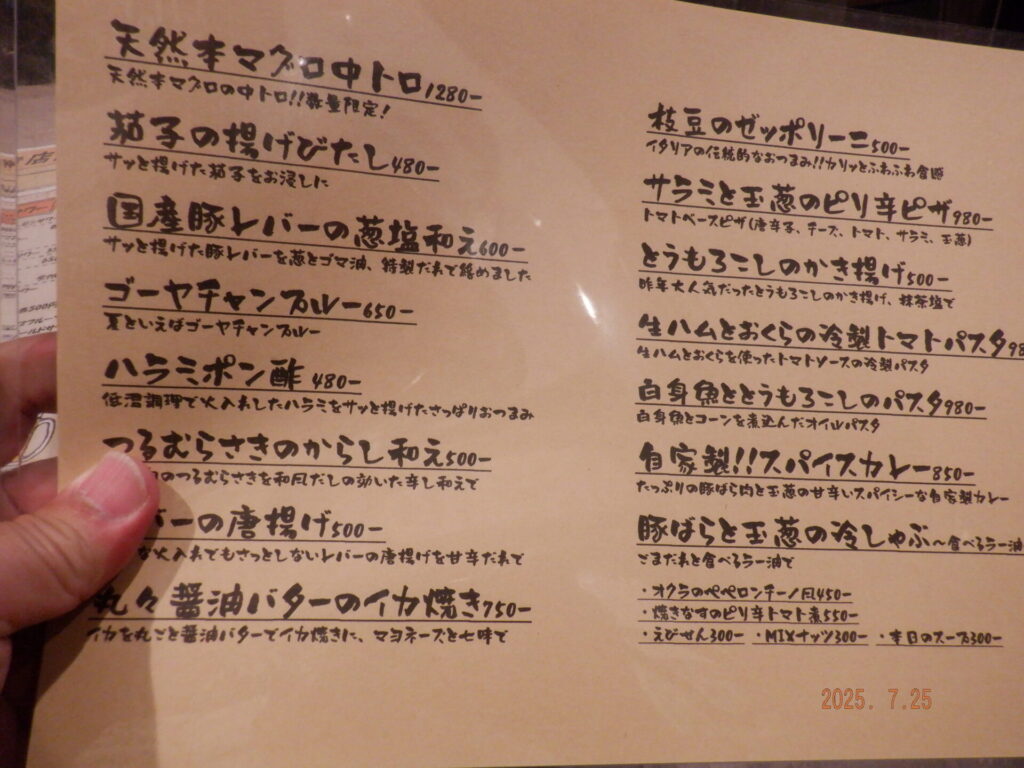 天然本マグロ中トロ1280-
天然本マグロの中トロ!!数量限定!
茄子の揚げびたし480-
サッと揚げた茄子をお浸しに
国産豚レバーの葱塩和え600-
サッと揚げた豚レバーを葱とゴマ油、特製だれで絡めました
ゴーヤチャンプルー650-
夏といえばゴーヤチャンプルー
ハラミポン酢 480-
低温調理で火入れしたハラミをサッと揚げたさっぱりおつまみ
つるむらさきのからし和え500-
のつるむらさきを和風だしの効いた辛し和えで
バーの唐揚げ500-
な火入れでもさっとしないレバーの唐揚げを甘辛だれで
丸々醤油バターのイカ焼き750-
イカを丸ごと醤油バターでイカ焼きに、マヨネーズと七味で
枝豆のゼッポリーニ500-
イタリアの伝統的なおつまみ!!カリッとふわふわ食感
サラミと玉葱のピリ辛ピザ980-
トマトベースピザ(唐辛子、チーズ、トマト、サラミ、玉葱)
とうもろこしのかき揚げ500-
昨年大人気だったとうもろこしのかき揚げ、抹茶塩で
生ハムとおくらの冷製トマトパスタ98
生ハムとおくらを使ったトマトソースの冷製パスタ
白身魚ととうもろこしのパスタ980-
白身魚とコーンを煮込んだオイルパスタ
自家製!!スパイスカレー850-
たっぷりの豚ばら肉と玉葱の甘辛いスパイシーな自家製カレー
豚ばらと玉葱の冷しゃぶ〜食べるラー油
ごまだれと食べるラー油で
・オクラのペペロンチーノ風450-
・焼きなすのピリ辛トマト煮550-
・えびせん300- ・MIXナッツ300- ・本日のスープ300-
2025. 7.25